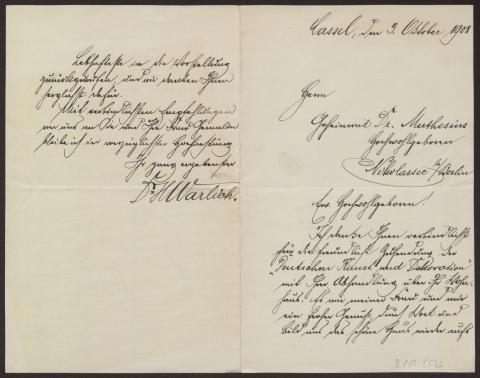 Cassel, den 3. Oktober 1908
Herrn
Geheimrat Dr. Muthesius
Hochwohlgeboren
Nikolassee b/Berlin
Ew. Hochwohlgeboren!
Ich danke Ihnen verbindlichst
für die freundliche Zusendung der
"Deutschen Kunst und Dekoration"
mit Ihrer Abhandlung über Ihr Wohn-
haus! Es war meiner Frau und mir
ein hoher Genuß, durch Wort und
Bild uns das schöne Haus wieder aufs
Lebhafteste in die Vorstellung
zurückzurufen, und wir danken Ihnen
herzlichst dafür.
Mit verbindlichsten Empfehlungen
von uns an Sie und Ihre Frau Gemahlin
bleibe ich in vorzüglichster Hochachtung
Ihr ganz ergebenster
Dr. H Warlich.